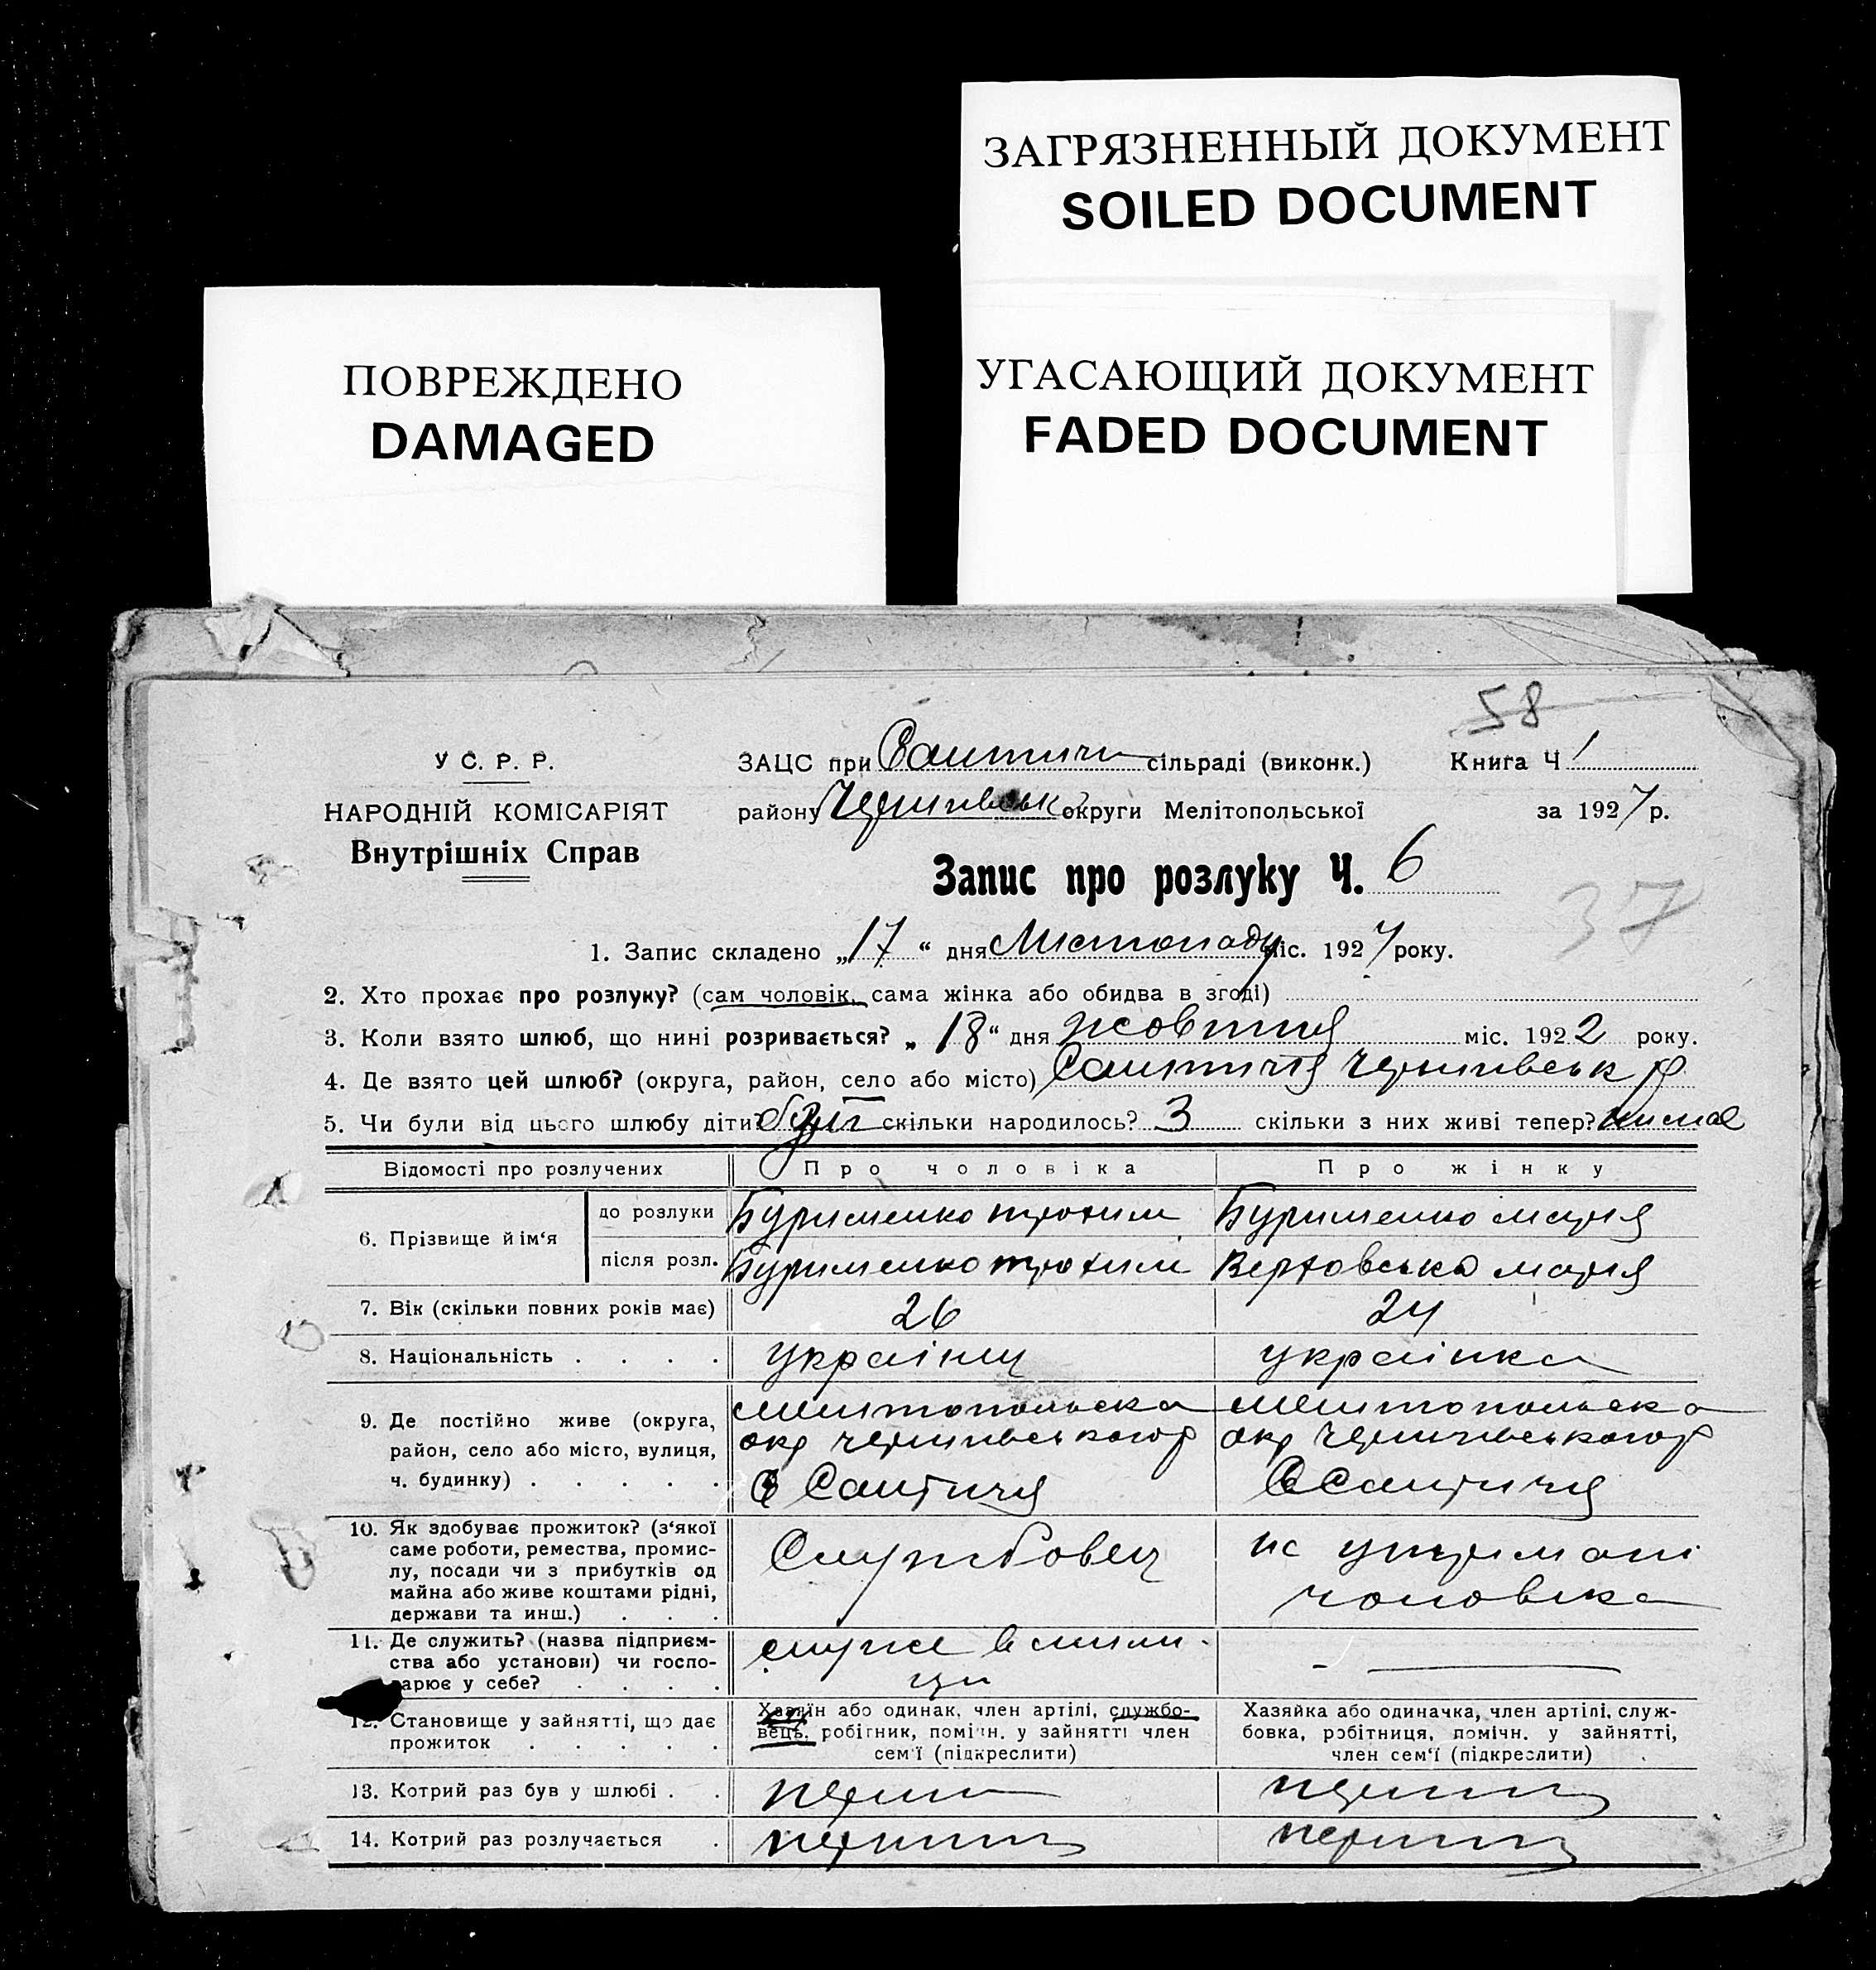 ЗАГРЯЗНЕННЫЙ ДОКУМЕНТ
SOILED DOCUMENT
ПОВРЕЖДЕНО
DAMAGED
УГАСАЮЩИЙ ДОКУМЕНТ
FADED DOCUMENT
58
У С. Р. Р.
ЗАЦС при Салтичи сільраді (виконк.)
Книга Ч 1
НАРОДНІЙ КОМІСАРІЯТ
району Чернигівськ округи Мелітопольської
за 1927 р.
Внутрішніх Справ
Запис про розлуку Ч. 6
37
1. Запис складено „17“ дня Листопаду міс. 1927 року.
2. Хто прохає про розлуку? (сам чоловік, сама жінка або обидва в згоді)
3. Коли взято шлюб, що нині розривається? „18“ дня жовтня міс. 1922 року.
4. Де взято цей шлюб? (округа, район, село або місто) Салтичія Чернигівськ р
5. Чи були від цього шлюбу діти? були скільки народилось? 3 скільки з них живі тепер? нимає
Відомості про розлучених
Про чоловіка
Про жінку
6. Прізвище й ім‘я
до розлуки Бурименко трохим Бурименко мария
після розл. Бурименко трохим Вертовська мария
7. Вік (скільки повних років має) 26 24
8. Національність . . . . українец українка
9. Де постійно живе (округа, район, село або місто, вулиця, ч. будинку) . . . . .
мелитопольска
окр чернигивського р
С Салтичя
мелитопольска
окр чернигивського р
С Салтичя
10. Як здобуває прожиток? (з‘якої
саме роботи, ремества, промис-
лу, посади чи з прибутків од
майна або живе коштами рідні,
держави та инш.) . . .
Службовец
на утримані
чоловіка
11. Де служить? (назва підприєм-
ства або установи) чи госпо-
арює у себе? . . . .
служе в мили-
ци
12. Становище у зайнятті, що дає
прожиток . . . . .
Хазяїн або одинак, член артілі, службо-
вець, робітник, помічн. у зайнятті член
сем‘ї (підкреслити)
Хазяйка або одиначка, член артілі, служ-
бовка, робітниця, помічн. у зайнятті,
член сем‘ї (підкреслити)
13. Котрий раз був у шлюбі . .
14. Котрий раз розлучається .